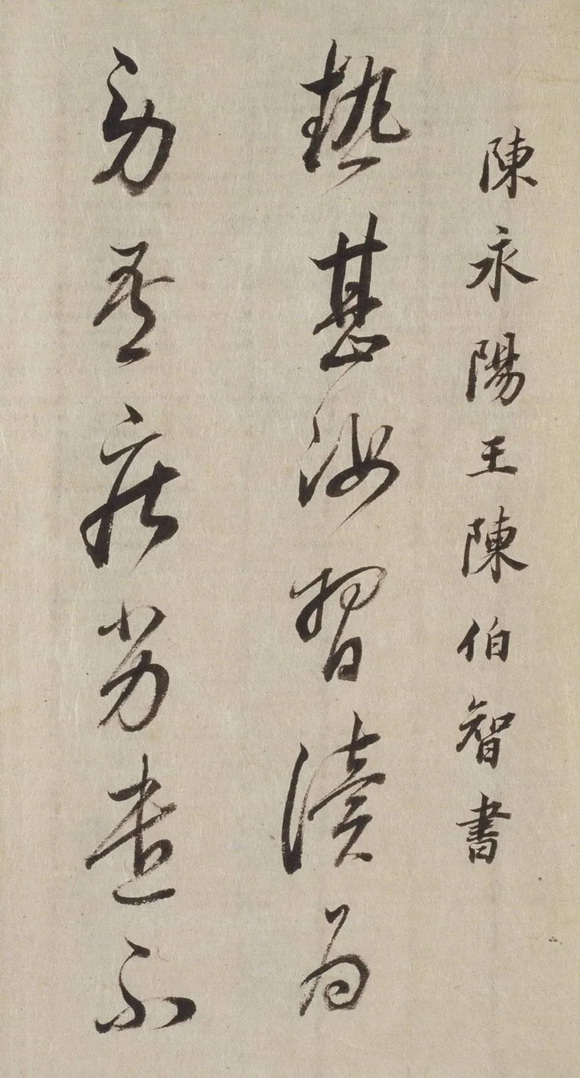 陳永陽王陳伯智書
熱甚汝習讀為
勞吾疾劣盡不